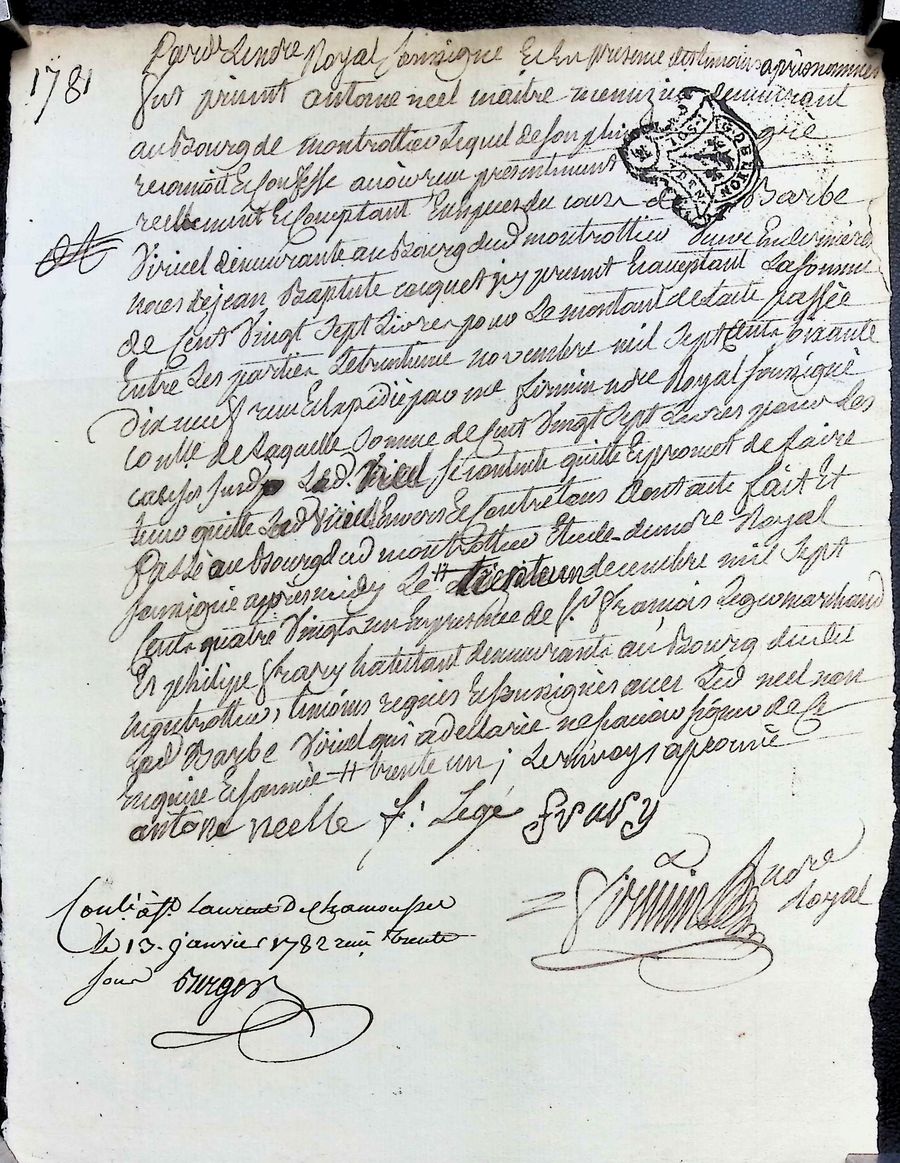 1781
Pard. Le no.re Royal soussigné Et En presence des temoins aprésnommés
fut present antoine neel maître menuisier demeurant
au Bourg de montrottier Lequel de son plein gré
reconnoit Et Confesse avoir reçu presentement
reellement Et Comptant En especes du cours de Barbe
Viricel demeurante au Bourg dud montrottier Veuve En dernieres
noces de jean Baptiste coquet icy present Et acceptant La somme
de Cent Vingt Sept Livres pour Le montant de L'acte passée
Entre Les parties Le trentieme novembre mil Sept Cent soixante
Dix neuf reçu Et Expedié par me firmin no.re Royal soussigné
cont.lé de Laquelle Somme de Cent Vingt Sept Livres pour Les
causes susd. Lad. Viricel Se contente quitte Et promet de faire
tenir quitte Lad Viricel Envers Et Contre tous Dont acte fait Et
Passé au Bourg dud montrottier Etude dud no.re Royal
soussigné aprésmidy Le # decembre mil Sept
Cent quatre Vingt un En presence de S.r François Legé marchand
Et philipe fravy habitant demeurants au Bourg dudit
montrottier, temoins requis Et soussignés avec Led neel non
Lad Barbe Viricel qui a declaré ne sçavoir signer de Ce
requise Et sommée # trente un ; Le renvoys aprouvé
antone neelle f: Legé fravy
firmin no.re Royal
Conl. à S.t Laurent De Chamousset
Le 13. janvier 1782 reçu trente
sous Burgos